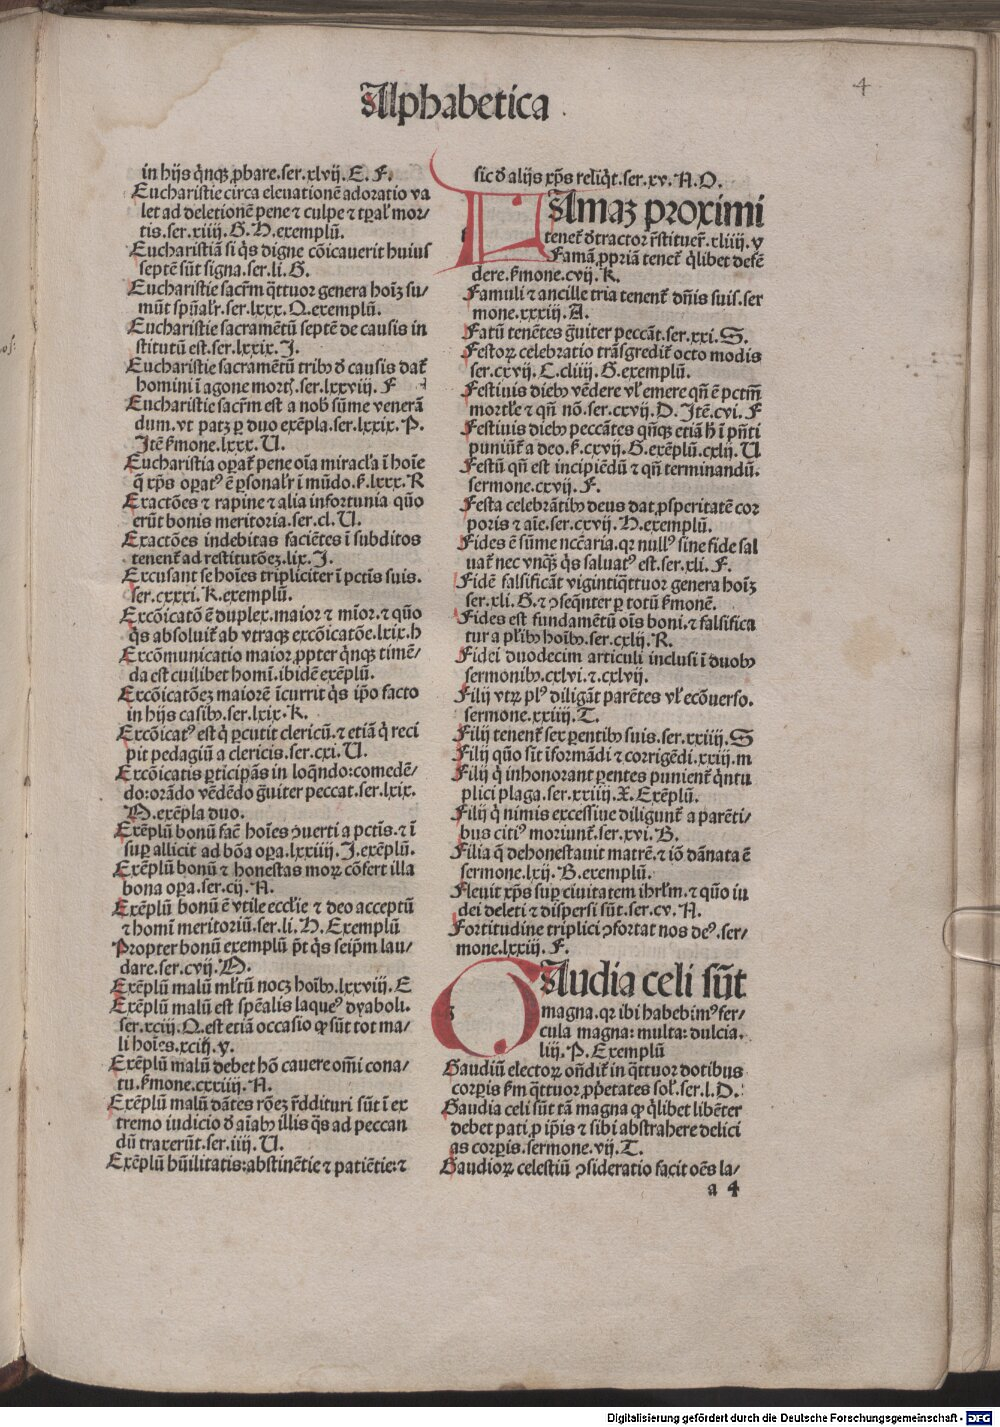 Alphabetica
4
in hijs q̇nqꝫ ꝓbare.ser.xlvij. E. F.
Eucharistie circa eleuationē adoratio va
let ad deletionē pene ⁊ culpe ⁊ tꝑal̓ mor/
tis.ser.xiiij. G. H.exemplū.
Eucharistiā si q̇s digne cōicauerit huius
septē sūt signa.ser.li. G.
Eucharistie sacr̄m q̄ttuor genera hoīꝫ su/
mūt sp̄ūal̓r.ser.lxxx. O.exemplū.
Eucharistie sacramētū septē de causis in
stitutū est.ser.lxxix. J.
Eucharistie sacramētū tribꝰ ꝺ̄ causis dat̄
homini ī agone mort̄.ser.lxxviij. F
Eucharistie sacr̄m est a nob̄ sūme venerā
dum.vt patꝫ ꝑ duo exēpla.ser.lxxix. P.
Jtē ẜmone.lxxx. U.
Eucharistia oꝑat̄ pene oīa miracl̓a ī hoīe
q̄ xp̄s oꝑatꝰ ē ꝑsonal̓r ī mūdo.ẜ.lxxx. R
Exactōes ⁊ rapine ⁊ alia infortunia quō
erūt bonis meritoria.ser.cl. U.
Exactōes indebitas faciētes ī subditos
tenent̄ ad restitutōeꝫ.lix. J.
Excusant se hoīes tripliciter ī pctīs suis.
ser.cxxxi. K.exemplū.
Excōicatō ē duplex.maior ⁊ mīor.⁊ quō
q̇s absoluit̄ ab vtraqꝫ excōicatōe.lxix.h
Excōmunicatio maior ꝓpter q̇nqꝫ timē/
da est cuilibet homī.ibidē exēplū.
Excōicatōeꝫ maiorē īcurrit q̇s ip̄o facto
in hijs casibꝰ.ser.lxix. K.
Excōicatꝰ est q̇ ꝑcutit clericū.⁊ etiā q̇ reci
pit pedagiū a clericis.ser.cxi. U.
Excōicatis ꝑticipās in loq̄ndo:comedē/
do:orādo vēdēdo g̈uiter peccat.ser.lxix.
M.exēpla duo.
Exēplū bonū facē hoīes ꝯuerti a pctīs.⁊ ī
suꝑ allicit ad bōa oꝑa.lxxiiij. J.exēplū.
Exēplū bonū ⁊ honestas moꝝ cōfert illa
bona oꝑa.ser.cij. A.
Exēplū bonū ē vtile eccl̓ie ⁊ deo acceptū
⁊ homī meritoriū.ser.li. H. Exemplū
Propter bonū exemplū p̄t q̇s seip̄m lau/
dare.ser.cvij. M.
Exēplū malū ml̓tū nocꝫ hoībꝰ.lxxviij. E
Exēplū malū est spēalis laqueꝰ dyaboli.
ser.xciij. O.est etiā occasio ꝙ sūt tot ma/
li hoīes.xciij.y.
Exēplū malū debet hō cauere om̄i cona/
tu.ẜmone.cxxiiij. A.
Exēplū malū dātes rōeꝫ r̄ddituri sūt ī ex
tremo iudicio ꝺ̄ aīabꝰ illis q̇s ad peccan
dū traxerūt.ser.iiij. U.
Exēplū hūilitatis:abstinētie ⁊ patiētie:⁊
sic ꝺ̄ alijs xp̄s reliq̇t.ser.xv. N. O.
FAmaꝫ proximi
tenet̄ ꝺ̄tractor r̄stituer̄.xliiij.y
Famā ꝓpriā tenet̄ q̇libet defē
dere.ẜmone.cvij. K.
Famuli ⁊ ancille tria tenent̄ dn̄is suis.ser
mone.xxxiij. A.
Fatū tenētes g̈uiter peccāt.ser.xxi. S.
Festoꝝ celebratio trāsgredit̄ octo modis
ser.cxvij. C.cliiij. G.exemplū.
Festiuis diebꝰ vēdere vl̓ emere qn̄ ē pctm̄
mortl̓e ⁊ qn̄ nō.ser.cxvij. D. Jtē.cvi. F
Festiuis diebꝰ peccātes qn̄qꝫ etiā h̄ ī pn̄ti
puniūt̄ a deo.ẜ.cxvij. G.exēplū.cxlij. U
Festū qn̄ est incipiēdū ⁊ qn̄ terminandū.
sermone.cxvij. F.
Festa celebrātibꝰ deus dat ꝓsperitatē cor
poris ⁊ aīe.ser.cxvij. H.exemplū.
Fides ē sūme nccāria.qꝛ nullꝰ sine fide sal
uat̄ nec vnqꝫ q̇s saluatꝰ est.ser.xli. F.
Fidē falsificāt vigintiq̄ttuor genera hoīꝫ
ser.xli. G.⁊ ꝯseq̄nter ꝑ totū ẜmonē.
Fides est fundamētū oīs boni.⁊ falsifica
tur a pl̓ibꝰ hoībꝰ.ser.cxlij. R.
Fidei duodecim articuli inclusi ī duobꝰ
sermonibꝰ.cxlvi.⁊.cxlvij.
Filij vtꝝ plꝰ diligāt parētes vl̓ ecōuerso.
sermone.xxiiij. T.
Filij tenent̄ ser ꝑentibꝰ suis.ser.xxiiij. S
Filij quō sīt īformādi ⁊ corrigēdi.xxiij.m
Filij q̇ inhonorant ꝑentes punient̄ q̇ntu
plici plaga.ser.xxiiij. X. Exēplū.
Filij q̇ nimis excessiue diligunt̄ a parēti/
bus citiꝰ moriunt̄.ser.xvi. B.
Filia q̄ dehonestauit matrē.⁊ iō dānata ē
sermone.lxij. B.exemplū.
Fleuit xp̄s suꝑ ciuitatem ihrl̓m.⁊ quō iu
dei deleti ⁊ dispersi sūt.ser.cv. A.
Fortitudine triplici ꝯfortat nos deꝰ.ser/
mone.lxxiij. F.
GAudia celi sūt
magna.qꝛ ibi habebimꝰ fer/
cula magna:multa:dulcia.
liij. P. Exemplū
Gaudiū electoꝝ on̄dit̄ in q̄ttuor dotibus
corꝑis ẜm q̄ttuor ꝓp̄etates sol̓.ser.l. D.
Gaudia celi sūt tā magna ꝙ q̇libet libēter
debet pati ꝓ ip̄is ⁊ sibi abstrahere delici
as corꝑis.sermone.vij. T.
Gaudioꝝ celestiū ꝯsideratio facit oēs la/
a 4
Digitalisierung gefördert durch die Deutsche Forschungsgemeinschaft - DFG